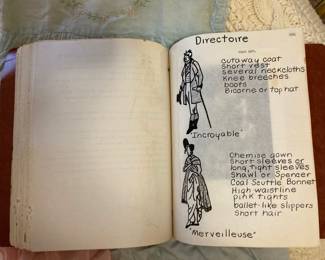 Directoire
cutaway coat
Short vest
several neckcloths
Knee breeches
boots
Bicorne or top hat
"Incroyable"
Chemise gown
Short sleeves or
long, tight sleeves
Shawl or Spencer
Coal Scuttle Bonnet
High waistline
pink tights
ballet-like slippers
Short hair
"Merveilleuse"